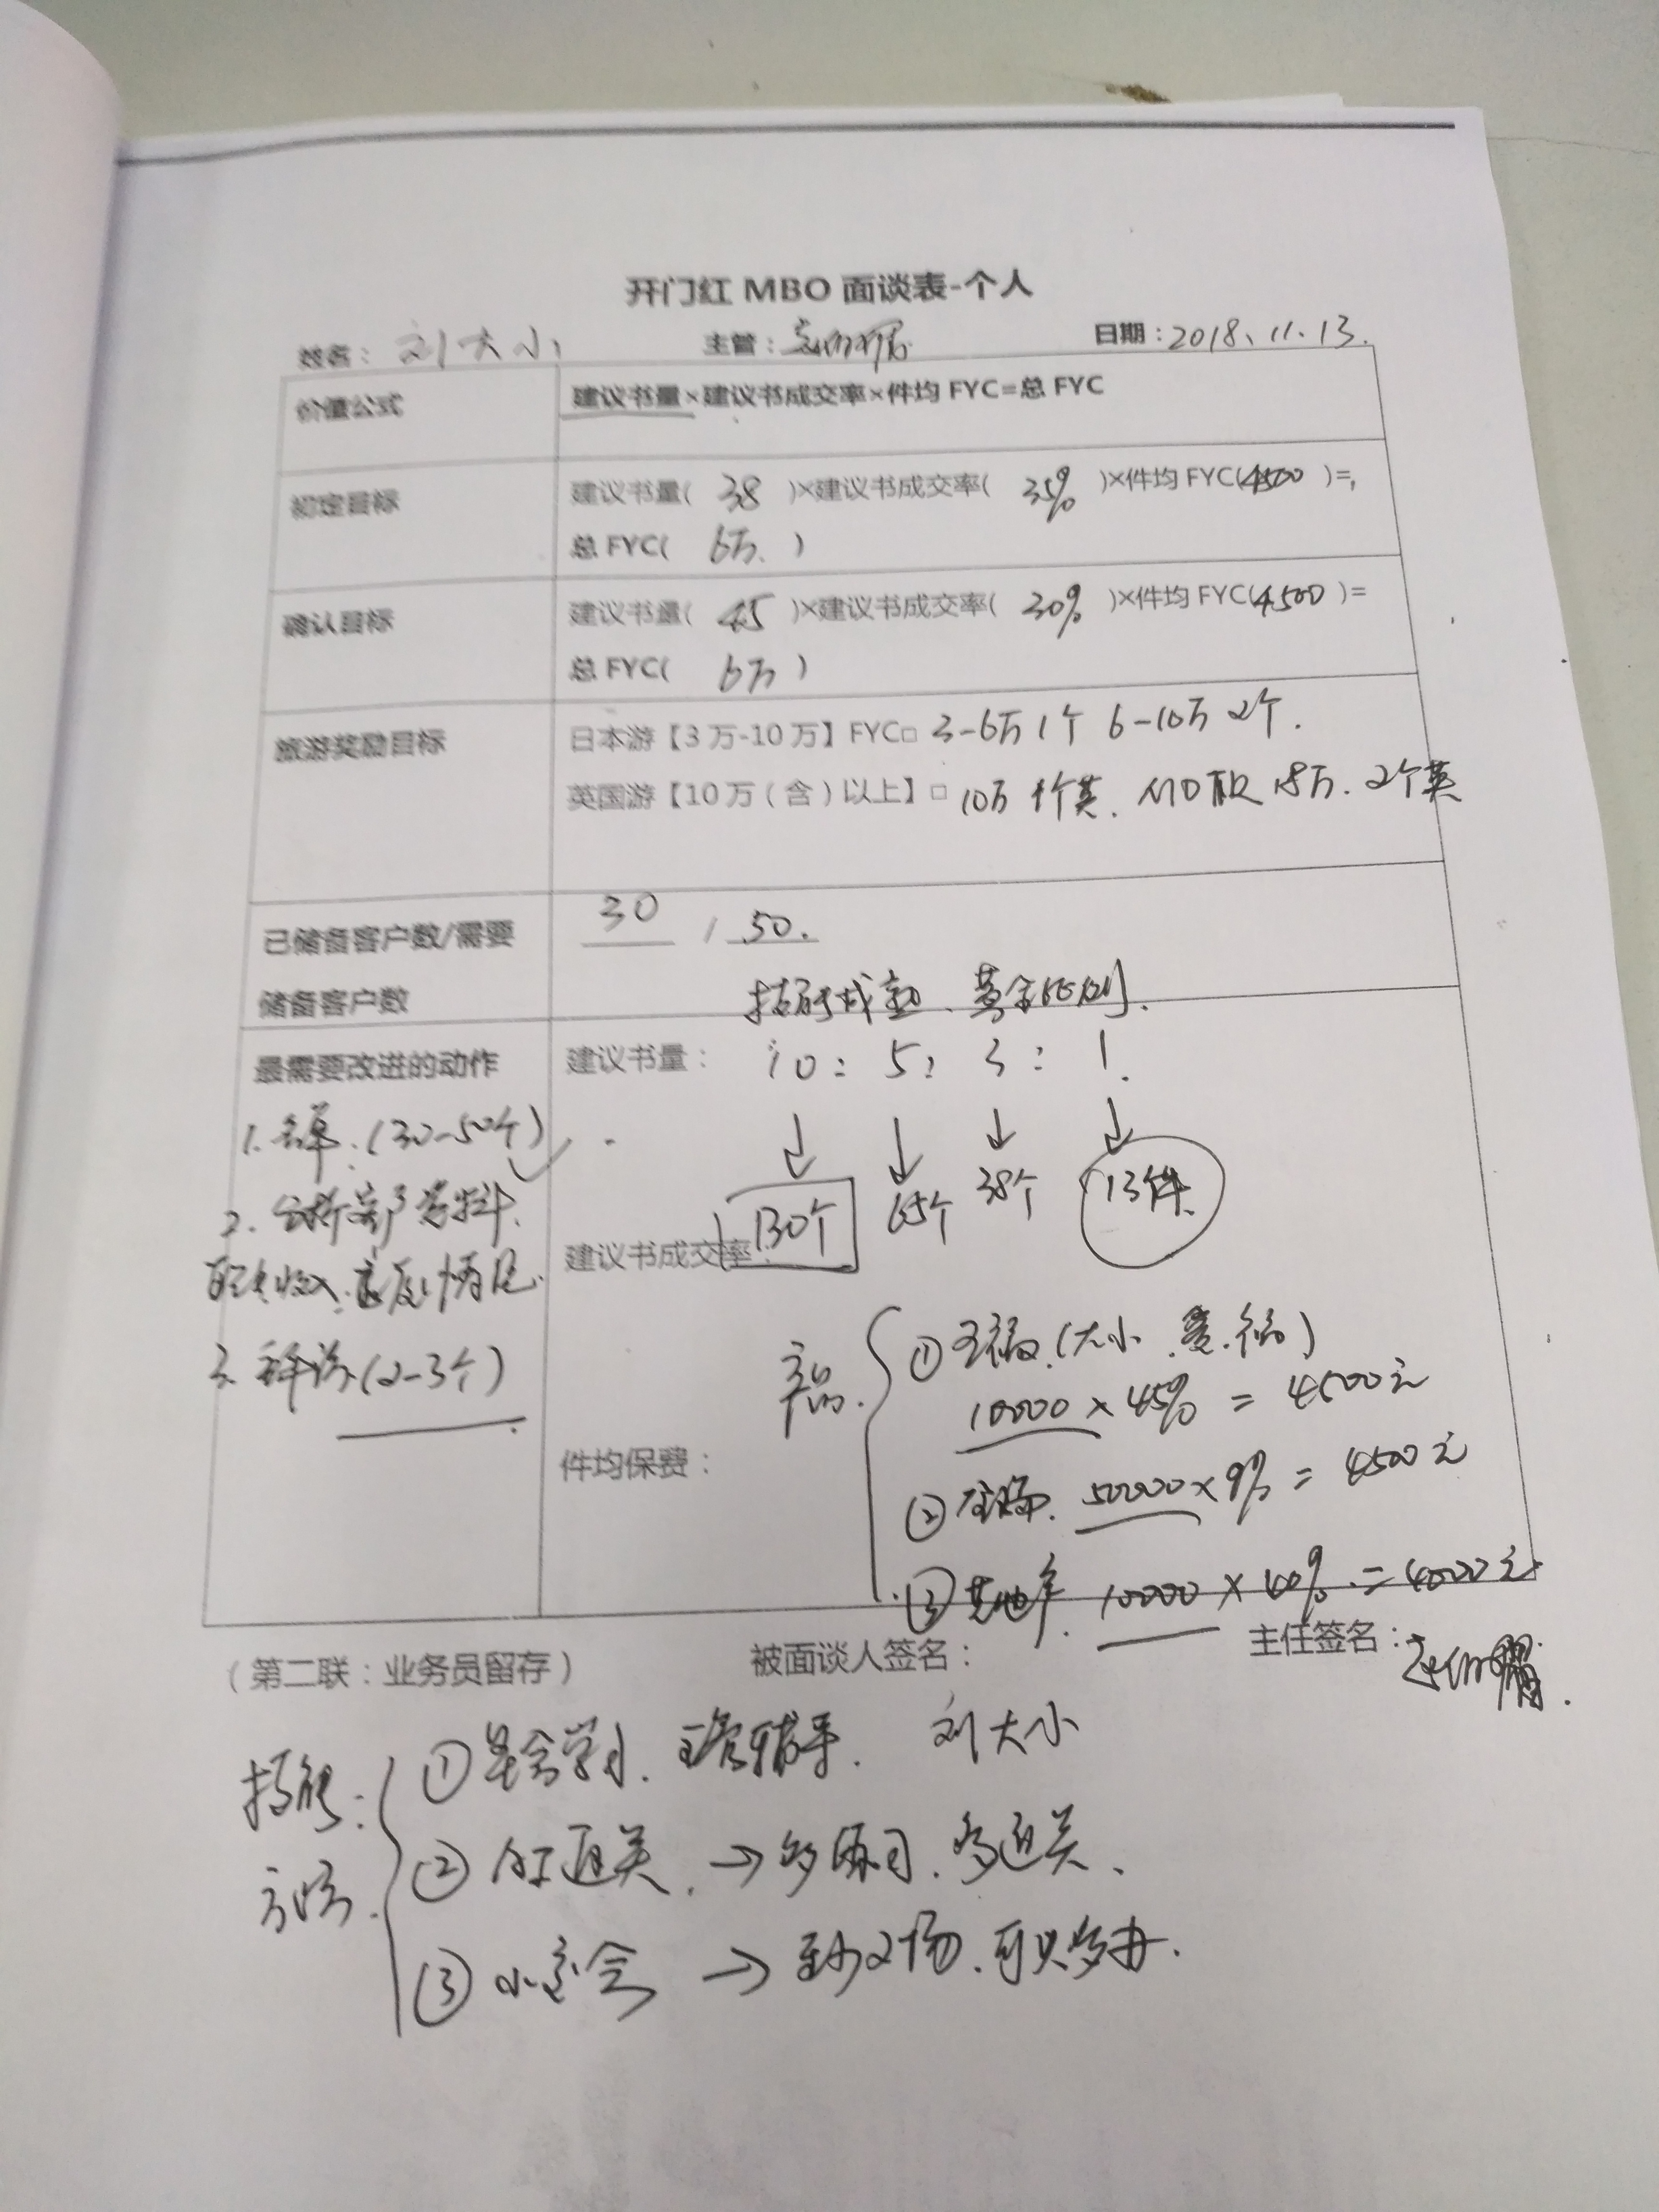 开门红 MBO 面谈表-个人
姓名：刘大小 主管： 日期：2018.11.13.
价值公式 建议书量×建议书成交率×件均 FYC=总 FYC
初定目标 建议书量( 38 )×建议书成交率( 35% )×件均 FYC(4500 )=,
总 FYC( 6万. )
确认目标 建议书量( 45 )×建议书成交率( 30% )×件均 FYC(4500 )=
总 FYC( 6万 )
旅游奖励目标 日本游【3 万-10 万】FYC□ 3-6万1个 6-10万2个.
英国游【10 万（含）以上】□ 10万1个英. 18万.2个英
已储备客户数/需要 30 / 50.
储备客户数
技能成熟、黄金比例.
最需要改进的动作
1. 名单.(30-50个)
2. 分析客户资料.
3. 拜访(2-3个)
建议书量： 10: 5: 3: 1.
130个 65个 38个 13件.
建议书成交率：
件均保费：
产品.
① (大小.
10000 × 45% = 4500元
② 50000 × 9% = 4500元
③ 其他 10000 × 40% = 4000元
（第二联：业务员留存） 被面谈人签名： 主任签名：
刘大小
技能:
方法.
① 早会学习. 主管辅导.
② 通关. → 多练习. 多通关、
③ 小产会 → 至少2场. 可以多办.